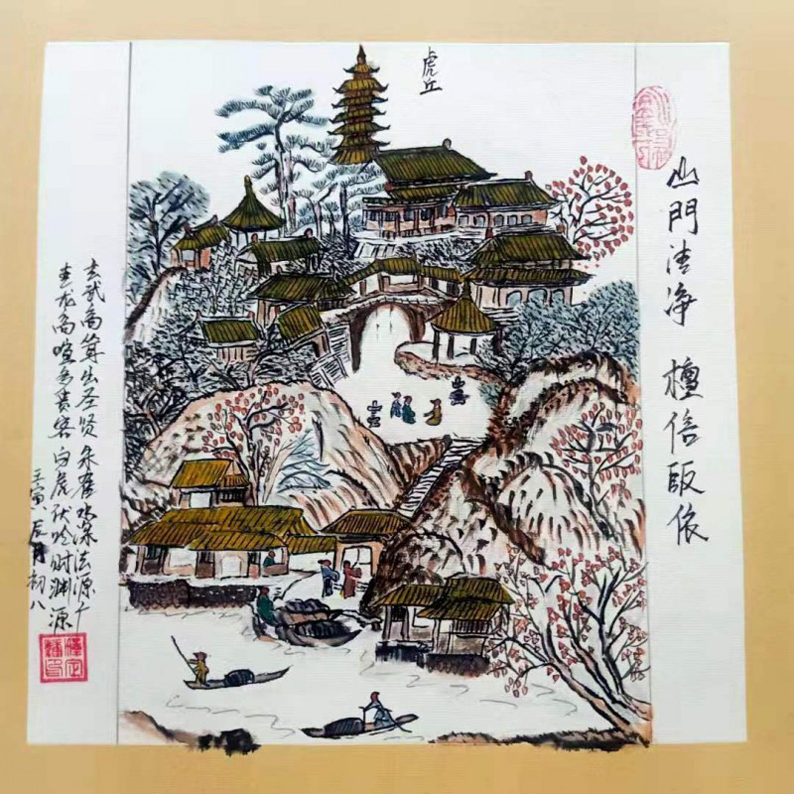 山門清净 檀信皈依
虎丘
玄武高耸出圣贤 朱雀水深法源广
青龙高喧多贵客 白虎伏吟财渊源
壬寅 辰月初八